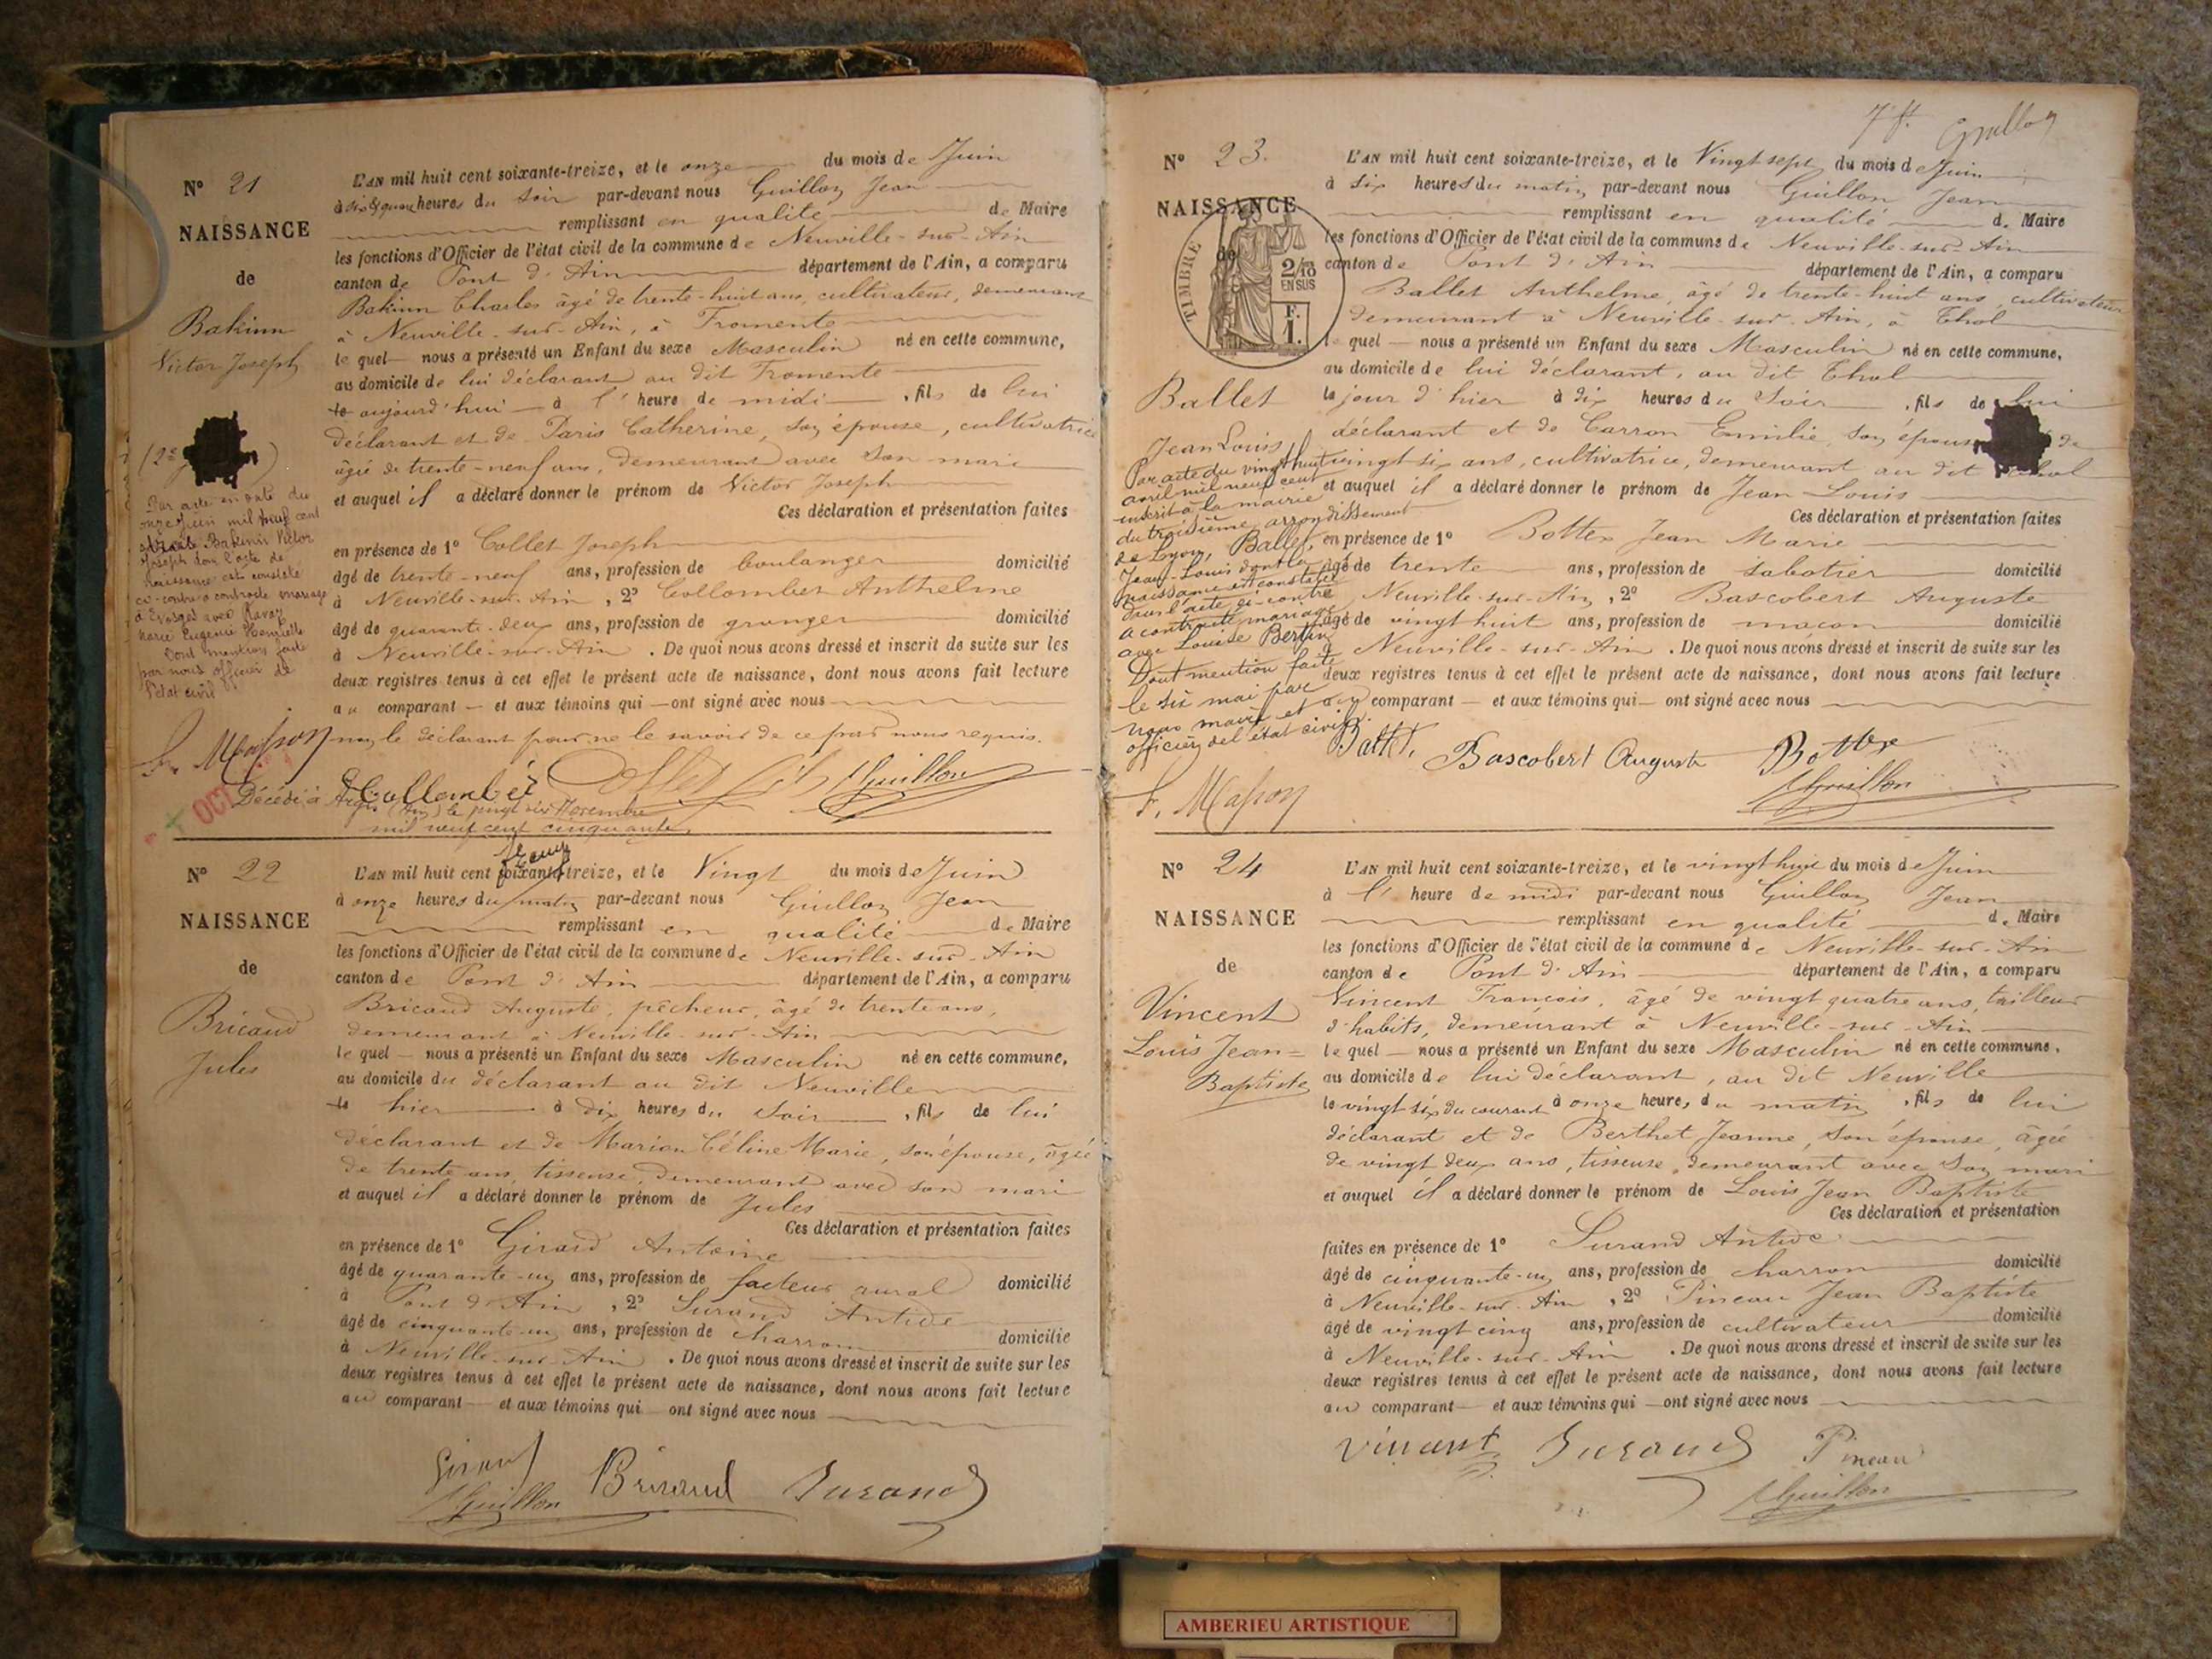 N° 21
NAISSANCE
de
Bakinn
Victor Joseph
L'AN mil huit cent soixante-treize, et le onze du mois de Juin
heures du soir par-devant nous Guillon Jean
remplissant en qualité de Maire
les fonctions d'Officier de l'état civil de la commune de Neuville-sur-Ain
canton de Pont d'Ain département de l'Ain, a comparu
Bakinn Charles âgé de trente-huit ans, cultivateur, demeurant
à Neuville-sur-Ain, à Fromente
lequel nous a présenté un Enfant du sexe Masculin né en cette commune,
au domicile de lui déclarant au dit Fromente
aujourd'hui à l'heure de midi, fils de lui
déclarant et de Paris Catherine, son épouse, cultivatrice
âgée de trente-neuf ans, demeurant avec son mari
et auquel il a déclaré donner le prénom de Victor Joseph
Ces déclaration et présentation faites
en présence de 1° Collet Joseph
âgé de trente-neuf ans, profession de boulanger domicilié
à Neuville-sur-Ain, 2° Collombet Anthelme
âgé de quarante-deux ans, profession de granger domicilié
à Neuville-sur-Ain. De quoi nous avons dressé et inscrit de suite sur les
deux registres tenus à cet effet le présent acte de naissance, dont nous avons fait lecture
au comparant et aux témoins qui ont signé avec nous
non le déclarant pour ne le savoir de ce par nous requis.
Par acte en date du
onze Juin mil neuf cent
Bakinn Victor
Joseph dont l'acte de
naissance est constaté
ci-contre a contracté mariage
à Evosges avec Ravoy
Marie Eugénie Henriette
Dont mention faite
par nous officier de
l'état civil
Fr. Masson
Collombet Collet Guillon
OCT
Décédé à Argis (Ain) le vingt six Novembre
mil neuf cent cinquante
N° 22
NAISSANCE
de
Bricaud
Jules
L'AN mil huit cent soixante-treize, et le Vingt du mois de Juin
à onze heures du matin par-devant nous Guillon Jean
remplissant en qualité de Maire
les fonctions d'Officier de l'état civil de la commune de Neuville-sur-Ain
canton de Pont d'Ain département de l'Ain, a comparu
Bricaud Auguste, pêcheur, âgé de trente ans,
demeurant à Neuville-sur-Ain
lequel nous a présenté un Enfant du sexe Masculin né en cette commune,
au domicile du déclarant au dit Neuville
le hier à dix heures du soir, fils de lui
déclarant et de Marion Céline Marie, son épouse, âgée
de trente ans, tisseuse, demeurant avec son mari
et auquel il a déclaré donner le prénom de Jules
Ces déclaration et présentation faites
en présence de 1° Girard Antoine
âgé de quarante-un ans, profession de facteur rural domicilié
à Pont d'Ain, 2° Surand Antide
âgé de cinquante-un ans, profession de charron domicilié
à Neuville-sur-Ain. De quoi nous avons dressé et inscrit de suite sur les
deux registres tenus à cet effet le présent acte de naissance, dont nous avons fait lecture
au comparant et aux témoins qui ont signé avec nous
Girard Bricaud Surand
Guillon
7 f. Guillon
N° 23.
NAISSANCE
de
TIMBRE
2/10
EN SUS
F.
1.
Ballet
Jean Louis
L'AN mil huit cent soixante-treize, et le Vingt sept du mois de Juin
à six heures du matin par-devant nous Guillon Jean
remplissant en qualité de Maire
les fonctions d'Officier de l'état civil de la commune de Neuville-sur-Ain
canton de Pont d'Ain département de l'Ain, a comparu
Ballet Anthelme, âgé de trente-huit ans, cultivateur
demeurant à Neuville-sur-Ain, à Thol
lequel nous a présenté un Enfant du sexe Masculin né en cette commune,
au domicile de lui déclarant, au dit Thol
le jour d'hier à dix heures du soir, fils de lui
déclarant et de Carron Emilie, son épouse de
vingt six ans, cultivatrice, demeurant au dit Thol
et auquel il a déclaré donner le prénom de Jean Louis
Ces déclaration et présentation faites
en présence de 1° Bottex Jean Marie
âgé de trente ans, profession de sabotier domicilié
Neuville-sur-Ain, 2° Bascobert Auguste
âgé de vingt huit ans, profession de maçon domicilié
à Neuville-sur-Ain. De quoi nous avons dressé et inscrit de suite sur les
deux registres tenus à cet effet le présent acte de naissance, dont nous avons fait lecture
au comparant et aux témoins qui ont signé avec nous
Par acte du vingt huit
avril mil neuf cent
inscrit à la mairie
du troisième arrondissement
de Lyon, Ballet,
Jean-Louis dont la
naissance est constatée
dans l'acte ci-contre
a contracté mariage
avec Louise Bertin
Dont mention faite
le six mai par
nous maire et
officier de l'état civil.
Fr. Masson
Ballet, Bascobert Auguste Bottex
Guillon
N° 24
NAISSANCE
de
Vincent
Louis Jean=
Baptiste
L'AN mil huit cent soixante-treize, et le vingt huit du mois de Juin
à l'heure de midi par-devant nous Guillon Jean
remplissant en qualité de Maire
les fonctions d'Officier de l'état civil de la commune de Neuville-sur-Ain
canton de Pont d'Ain département de l'Ain, a comparu
Vincent François, âgé de vingt quatre ans, tailleur
d'habits, demeurant à Neuville-sur-Ain
lequel nous a présenté un Enfant du sexe Masculin né en cette commune,
au domicile de lui déclarant, au dit Neuville
le vingt six du courant à onze heures du matin, fils de lui
déclarant et de Berthet Jeanne, son épouse, âgée
de vingt deux ans, tisseuse, demeurant avec son mari
et auquel il a déclaré donner le prénom de Louis Jean Baptiste
Ces déclaration et présentation
faites en présence de 1° Surand Antide
âgé de cinquante-un ans, profession de charron domicilié
à Neuville-sur-Ain, 2° Pineau Jean Baptiste
âgé de vingt cinq ans, profession de cultivateur domicilié
à Neuville-sur-Ain. De quoi nous avons dressé et inscrit de suite sur les
deux registres tenus à cet effet le présent acte de naissance, dont nous avons fait lecture
au comparant et aux témoins qui ont signé avec nous
Vincent Surand Pineau
Guillon
AMBERIEU ARTISTIQUE